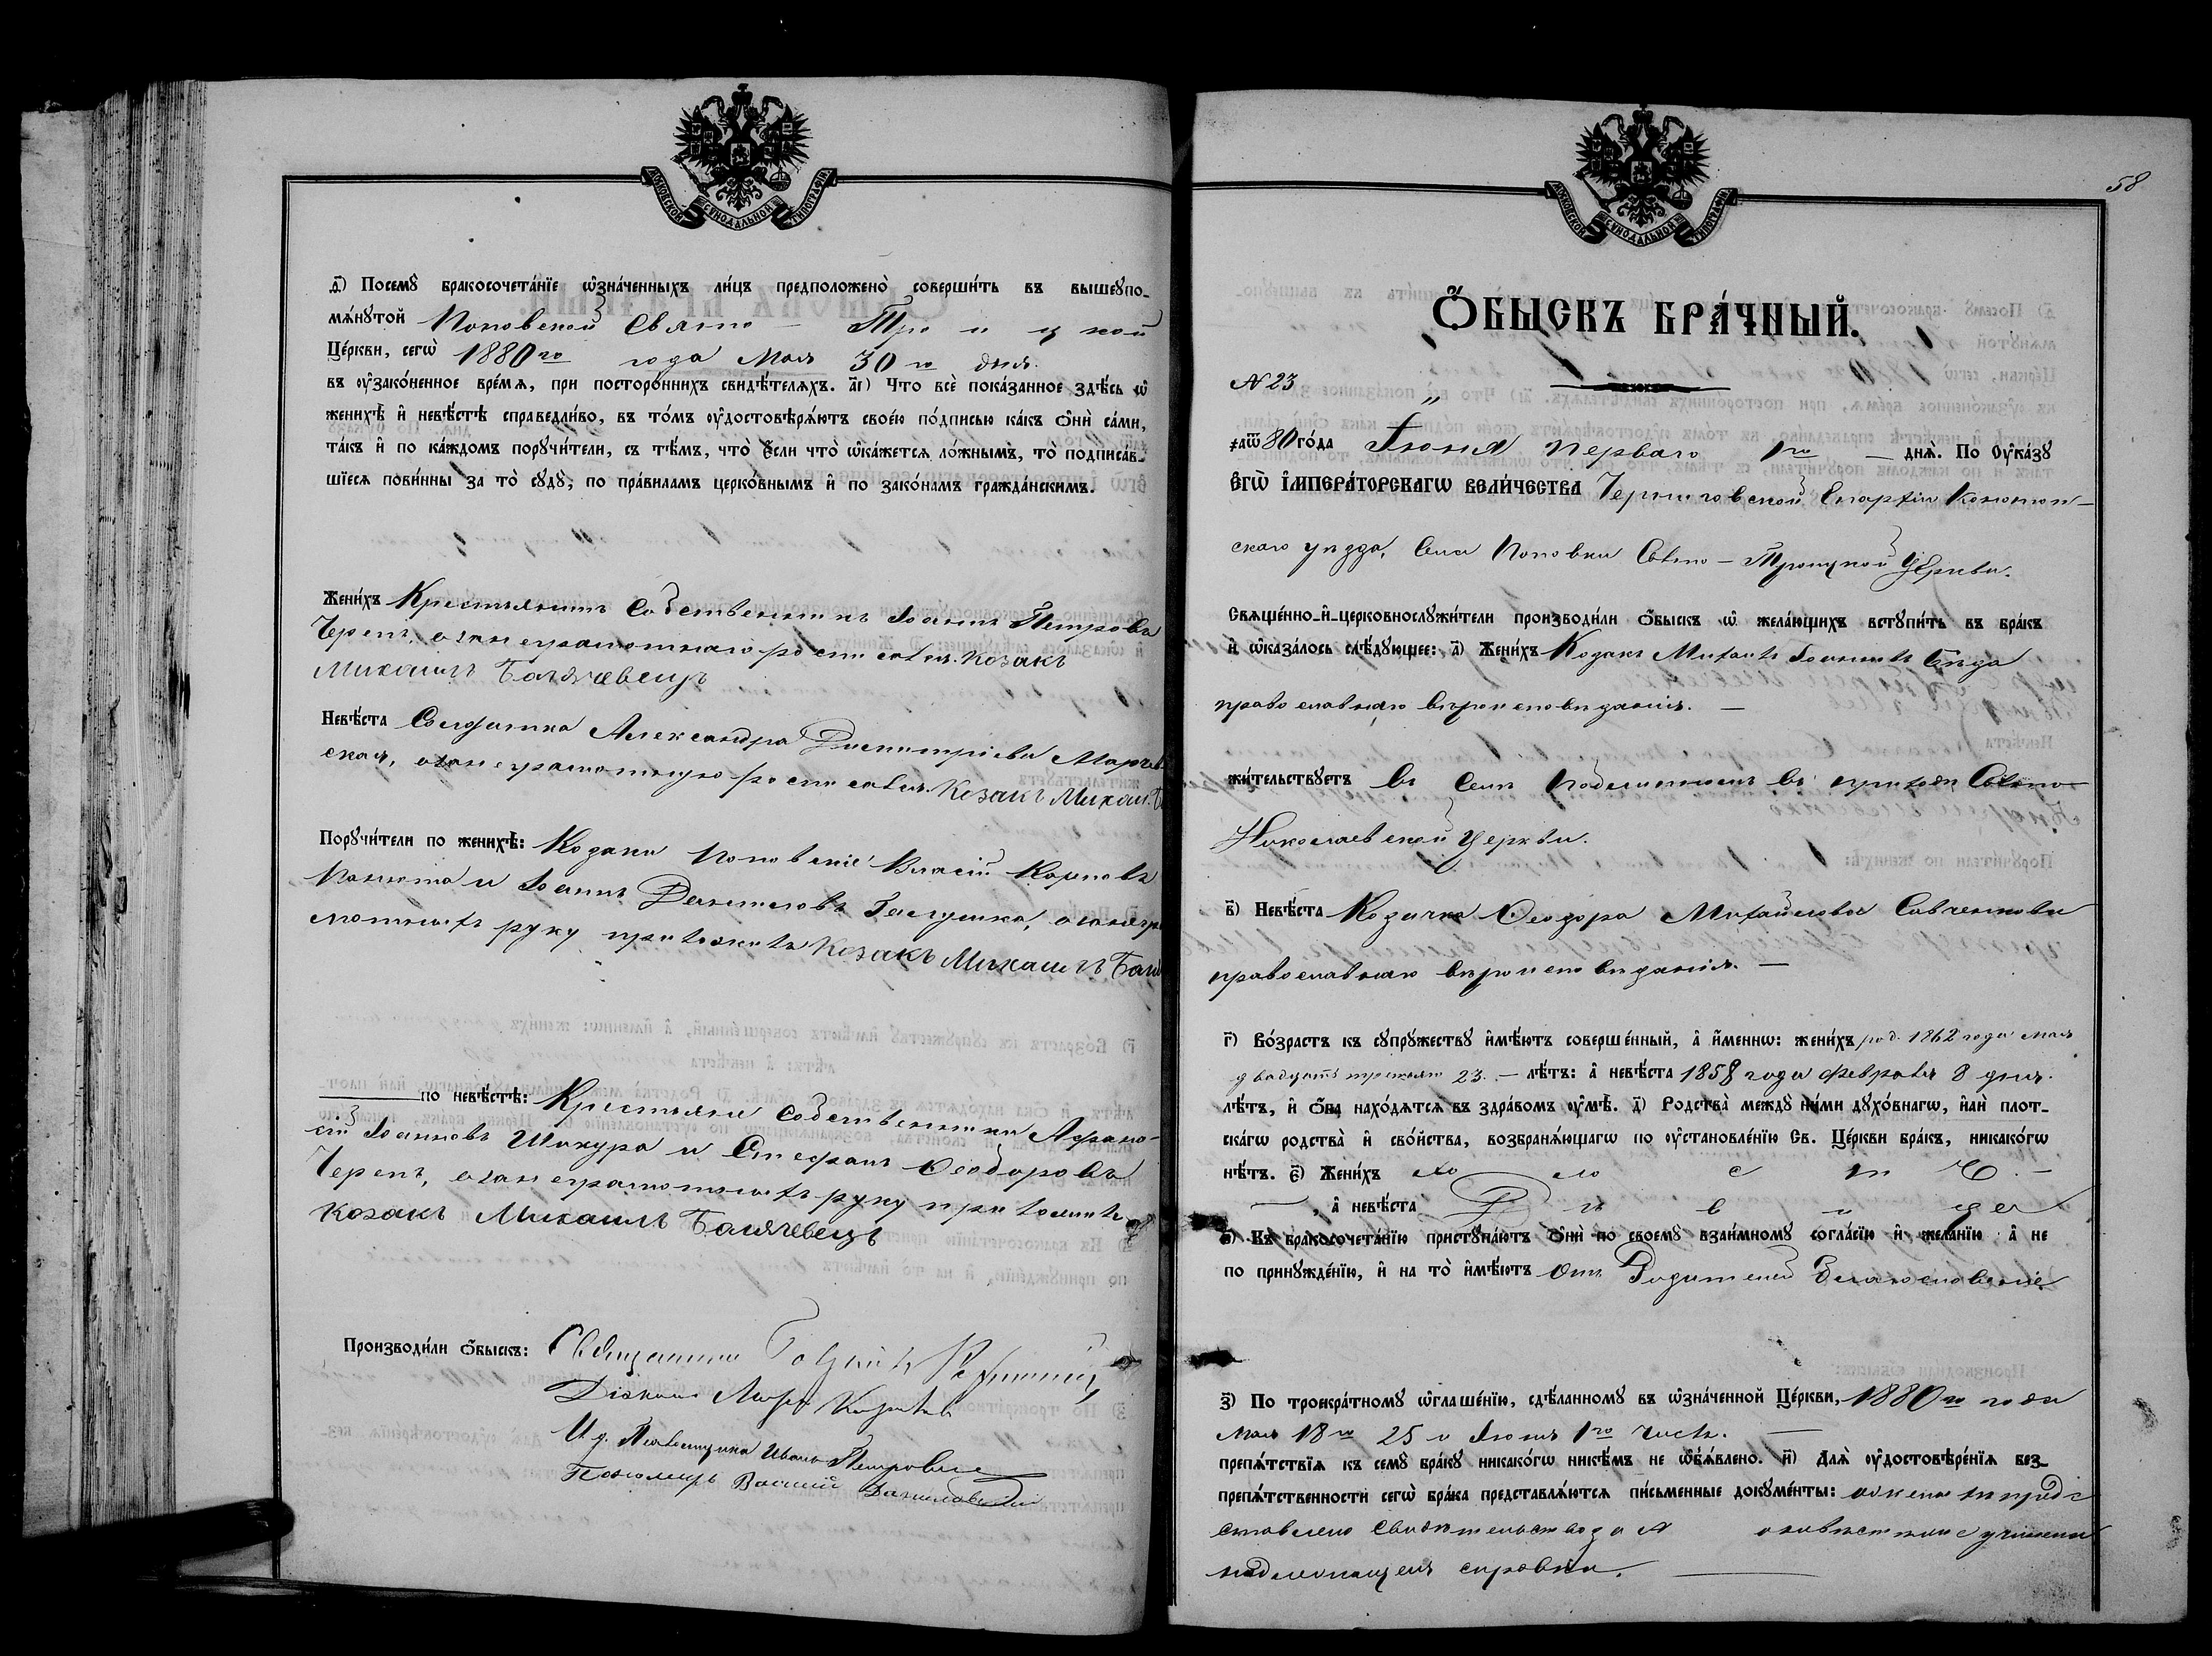 МОСКОВСКОЙ СѴНОДАЛЬНОЙ ТИПОГРАФІИ
і҃) Посемꙋ бракосочета́нїе ѡ҆зна́ченныхъ ли́цъ предположено̀ соверши́ть въ вышеꙋпо-
мѧ́нꙋтой Поповской Свято - Троицкой
Це́ркви, сегѡ̀ 1880го года Мая 30го дня.
въ ᲂу҆зако́ненное вре́мѧ, при посторо́ннихъ свидѣ́телѧхъ. а҃і) Что всѐ пока́занное здѣ́сь ѡ҆
женихѣ̀ и҆ невѣ́стѣ справедли́во, въ то́мъ ᲂу҆достовѣрѧ́ютъ свое́ю по́дписью ка́къ ѻ҆нѝ са́ми,
та́къ и҆ по ка́ждомъ порꙋчи́тели, съ тѣ́мъ, что̀ є҆́сли что̀ ѡ҆ка́жетсѧ ло́жнымъ, то̀ подписа́в-
шїесѧ пови́нны за то̀ сꙋдꙋ̀, по пра́виламъ церко́внымъ и҆ по зако́намъ гражда́нскимъ.
Жени́хъ Крестьянинъ Собственникъ Іоаннъ Петровъ
Черепъ, а за неграмотнаго росписался козакъ
Михаилъ
Невѣ́ста Солдатка Александра Димитріева
ская, а за неграмотную росписался Козакъ Михаи
Порꙋчи́тели по женихѣ̀: Козаки Поповскіе Власій Карповъ
и Іоаннъ Даниловъ Галушка, а за негра
мотныхъ руку приложилъ Козакъ Михаилъ
по невѣ́стѣ: Крестьяне Собственники Афана-
сій Іоанновъ Шакура и Стефанъ Ѳеодоровъ
Черепъ, а за неграмотныхъ руку приложилъ
Козакъ Михаилъ
Производи́ли ѻ҆́быскъ: Священникъ
Діаконъ
И.д. Псаломщика Иванъ Петровскій
Пономарь Василій Даниловскій
58
МОСКОВСКОЙ СѴНОДАЛЬНОЙ ТИПОГРАФІИ
Ѻ҆́БЫСКЪ БРА́ЧНЫЙ.
№ 23
҂аѿ 80 го́да Іюня перваго 1го — днѧ̀. По Оу҆ка́зꙋ
Е҆гѡ̀ І҆мпера́торскагѡ вели́чества Черниговской Епархіи Конотоп-
скаго уѣзда, Села Поповки Свято-Троицкой Церкви.
Свѧще́нно-и҆-церковнослꙋжи́тели производи́ли ѻ҆́быскъ ѡ҆ жела́ющихъ встꙋпи́ть въ бра́къ
и҆ ѡ҆каза́лось слѣ́дꙋющее: а҃) Жени́хъ Козакъ Михаилъ Іоанновъ Бѣда
православнаго вѣроисповѣданія. —
жи́тельствꙋетъ въ Селѣ Подлипномъ въ приходѣ Свято-
Николаевской Церкви.
в҃) Невѣ́ста Козачка Ѳеодора Михайлова Савченкова
православнаго вѣроисповѣданія. —
г҃) Во́зрастъ къ сꙋпрꙋ́жествꙋ и҆мѣ́ютъ соверше́нный, а҆ и҆́менно: жени́хъ род. 1862 года мая
двадцать третьяго 23. — лѣ́тъ: а҆ невѣ́ста 1858 года Февраля 8 дня.
лѣ́тъ, и҆ ѻ҆́ба нахо́дѧтсѧ въ здра́вомъ ᲂу҆мѣ̀. д҃) Родства̀ междꙋ̀ ни́ми дꙋхо́внагѡ, и҆лѝ плот-
ска́гѡ родства̀ и҆ сво́йства, возбранѧ́ющагѡ по ᲂу҆становле́нїю Св. Це́ркви бра́къ, никако́гѡ
нѣ́тъ. є҃) Жени́хъ холостъ. —
—, а҆ невѣ́ста Дѣвица
ѕ҃) Къ бракосочета́нїю пристꙋпа́ютъ ѻ҆нѝ по своемꙋ̀ взаи́мномꙋ согла́сїю и҆ жела́нїю а҆ не
по принꙋжде́нїю, и҆ на то̀ и҆мѣ́ютъ отъ Родителей благословеніе.
з҃) По троекра́тномꙋ ѡ҆глаше́нїю, сдѣ́ланномꙋ въ ѡ҆зна́ченной Це́ркви, 1880го года
Мая 18го 25 и Іюня 1го числъ. —
препѧ́тствїѧ къ семꙋ̀ бра́кꙋ никако́гѡ никѣ́мъ не ѡ҆бъѧ́влено. и҃) Длѧ̀ ᲂу҆достовѣре́нїѧ без-
препѧ́тственности сегѡ̀ бра́ка представлѧ́ютсѧ пи́сьменные докꙋме́нты: о женихѣ пред-
ставлено свидѣтельство за № о невѣстѣ же учинена
надлежащая справка.